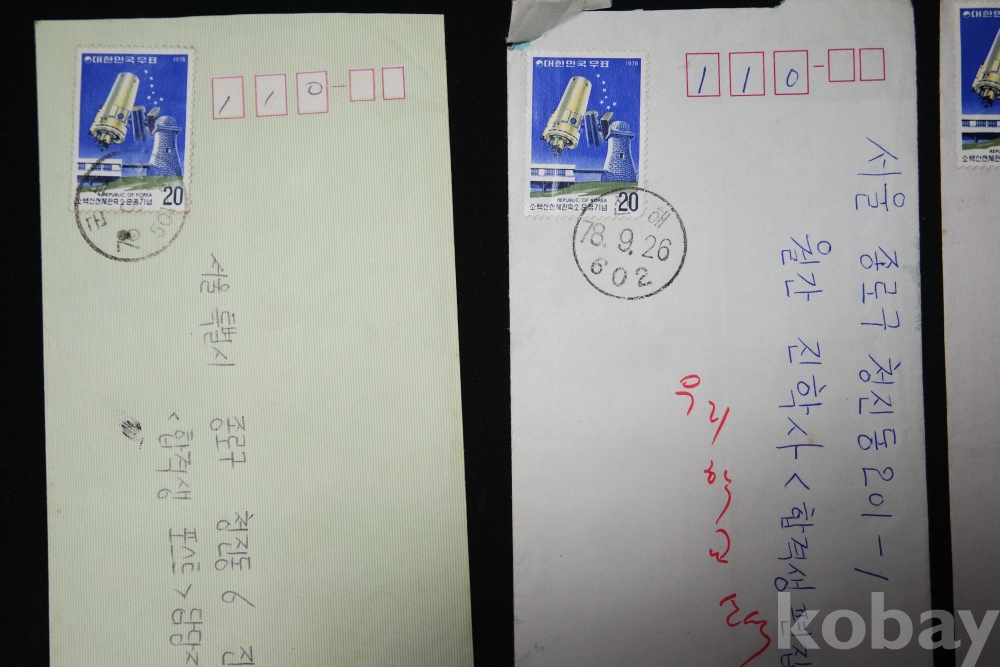 대한민국 우표
1978
110-
REPUBLIC OF KOREA
소백산천체관측소준공기념
20
78
서울 특별시
종로구 청진동 6
<합격생 포스트>
대한민국 우표
1978
110-
REPUBLIC OF KOREA
소백산천체관측소준공기념
20
해
78.9.26
602
서울 종로구 청진동 201-1
월간 진학사 <합격생 편집
우리학교
대한민국
소백산천체관측소
kobay